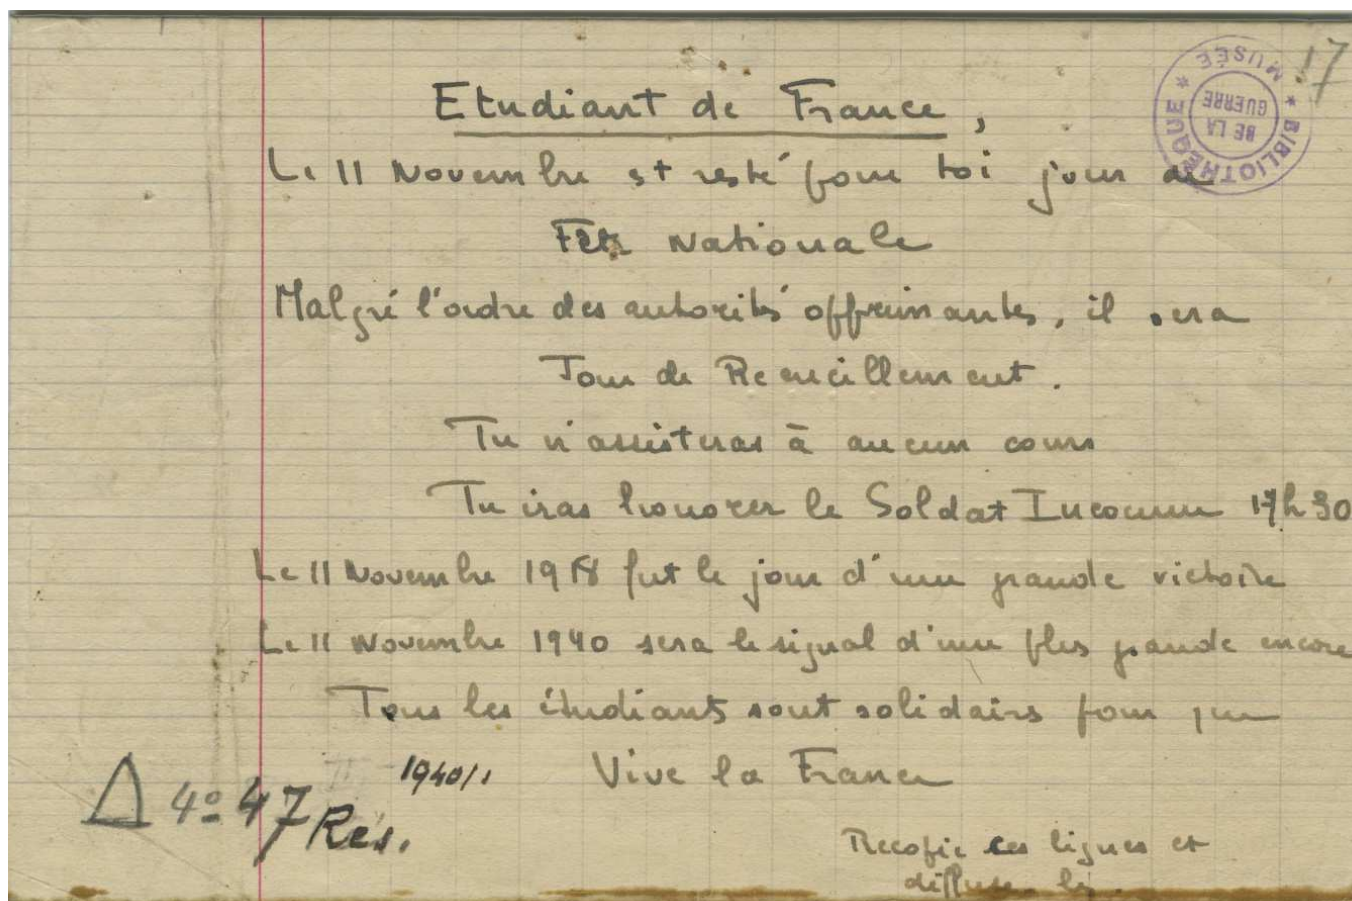 17
BIBLIOTHÈQUE * MUSÉE *
DE LA
GUERRE
Etudiant de France,
Le 11 Novembre est resté pour toi jour de
Fête Nationale
Malgré l'ordre des autorités opprimantes, il sera
Jour de Recueillement.
Tu n'assisteras à aucun cours
Tu iras honorer le Soldat Inconnu 17h30
Le 11 Novembre 1918 fut le jour d'une grande victoire
Le 11 Novembre 1940 sera le signal d'une plus grande encore
Tous les étudiants sont solidaires pour que
Vive la France
1940/1
Δ 4º 47 Rés.
Recopie ces lignes et
diffuse les.